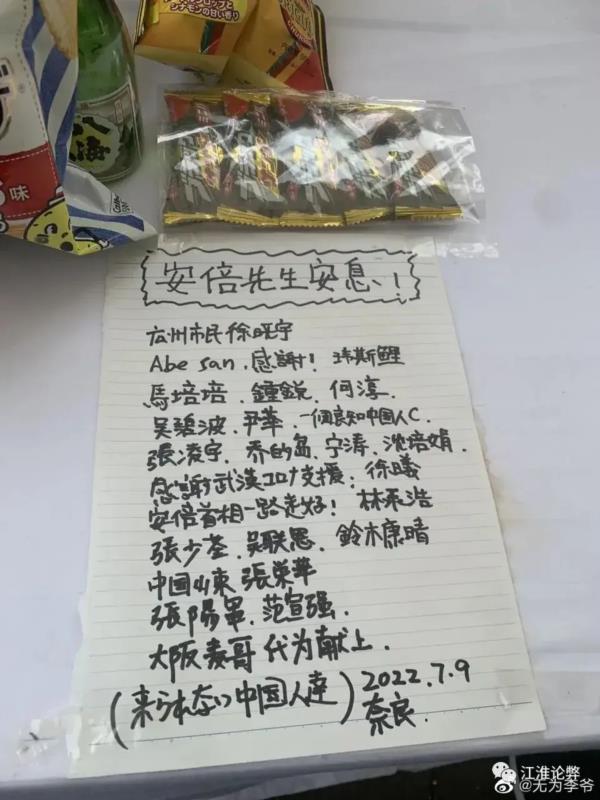 ドロップと
シナモンの甘い香り
八海
味
安倍先生安息！
広州市民徐晓宇
Abe san.感謝！ 玮斯鲤
馬培培．鍾鋭．何淳．
吴碧波．尹華．一個良知中国人C．
張凌宇．乔的岛．宁涛．沈培娟．
感謝武漢コロナ支援：徐曦
安倍首相一路走好！ 林禾浩
張少荃．吴联恩．鈴木康晴
中国山東 張栄華
張陽畢．范宣强．
大阪表哥 代为献上．
(来られない中国人達) 2022.7.9
奈良．
江淮论弊
@无为李爷